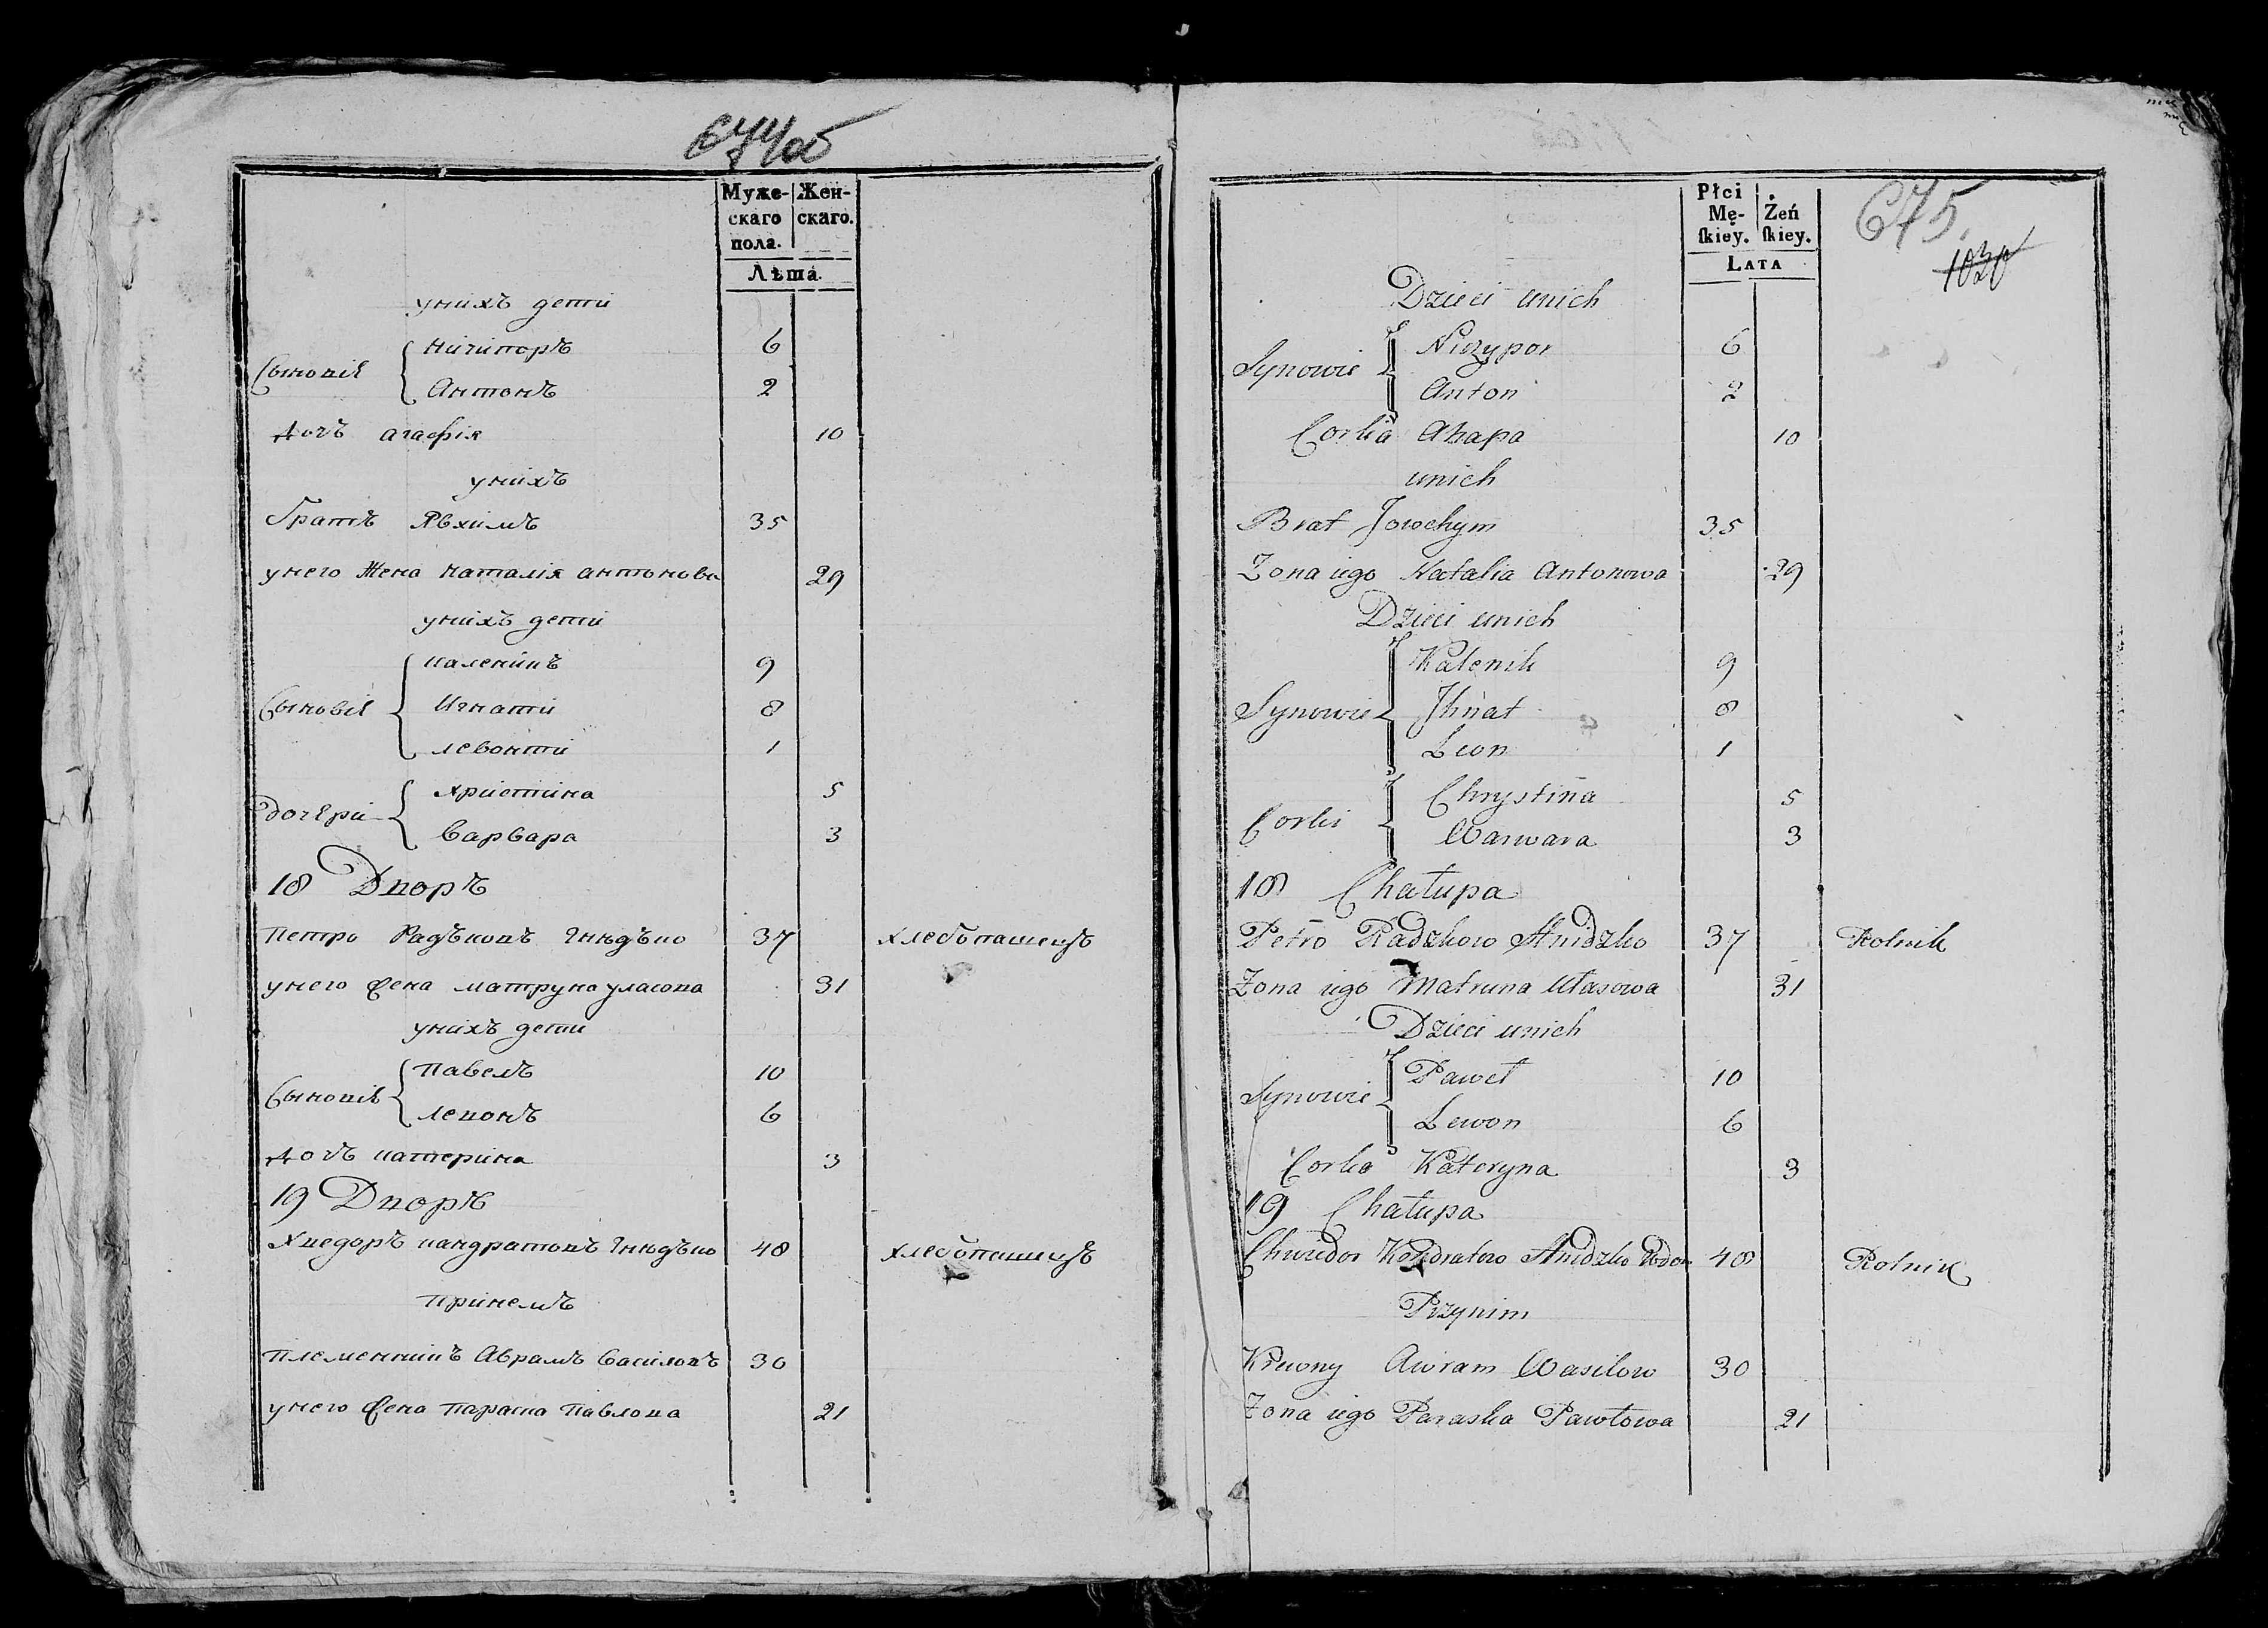 674об
Муже- Жен-
скаго скаго.
пола.
Лѣта.
унихъ дети
Сыновіе
Ничипоръ 6
Антонъ 2
дочъ агафія 10
унихъ
братъ Явхимъ 35
унего Жена наталія антонова 29
унихъ дети
каленикъ 9
Сыновіе Игнатіи 8
левонтіи 1
христина 5
дочери
варвара 3
18 Дворъ
Петро Радѣковъ Гнѣдѣко 37 хлебопашецъ
унего жена матруна уласова 31
унихъ дети
Павелъ 10
Сыновіе
левонъ 6
дочъ катерина 3
19 Дворъ
Хведоръ кандратовъ Гнѣдѣко 48 хлебопашецъ
принемъ
племенникъ Аврамъ василовъ 30
унего жена параска павлова 21
Płci Żeń
Mę- skiey.
skiey.
LATA
675.
1030
Dzieci unich
Synowie
Niczypor 6
Anton 2
Corka Ahapa 10
unich
Brat Jowchym 35
Zona iego Natalia Antonowa 29
Dzieci unich
Kalenik 9
Synowie Jhnat 8
Leon 1
Chrystina 5
Corki
Warwara 3
18 Chałupa
Petro Radzkow Hnidzko 37 Rolnik
Zona iego Matruna Ułasowa 31
Dzieci unich
Paweł 10
Synowie
Lewon 6
Corka Kateryna 3
19 Chałupa
Chwedor Kondratow Hnidzko Wdow 48 Rolnik
Przynim
Krewny Awram Wasilow 30
Zona iego Paraska Pawłowa 21